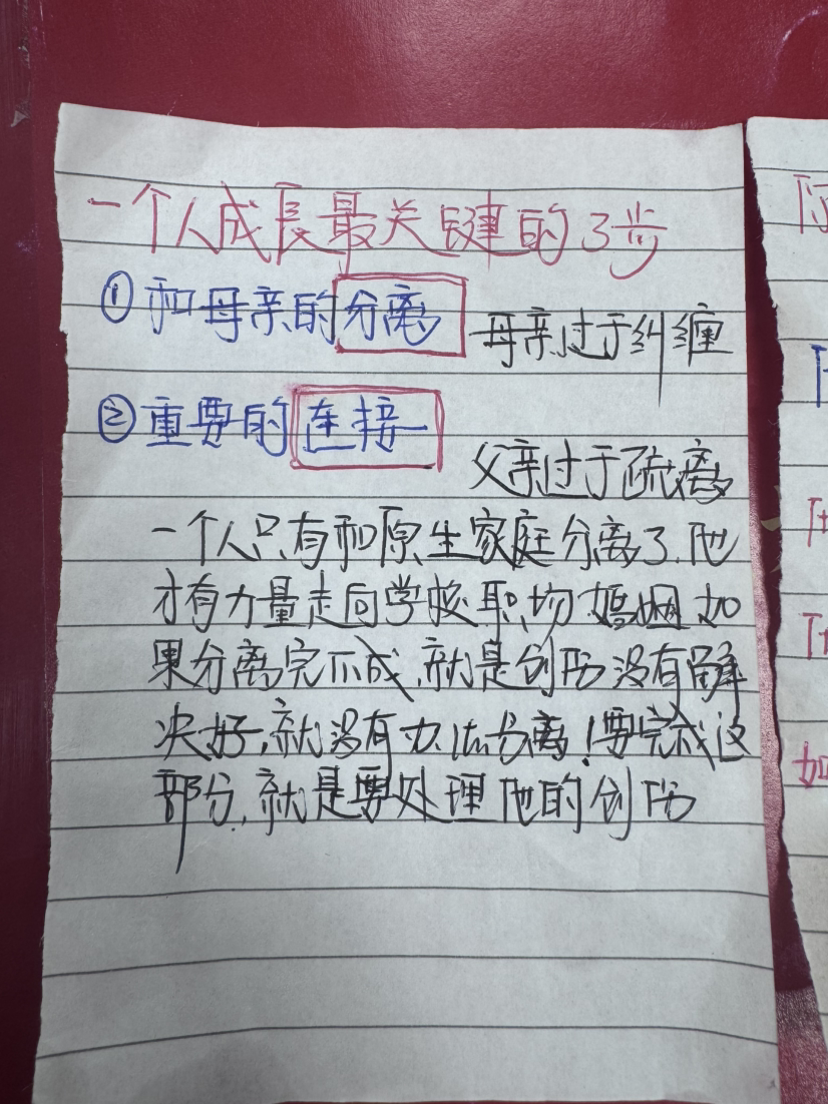 一个人成長最关键的3步
①和母亲的分离 母亲过于纠缠
②重要的连接
父亲过于疏离
一个人只有和原生家庭分离了.他
才有力量走向学校职场婚姻如
果分离完不成,就是创伤没有解
决好,就没有办法分离!要完成这
部分,就是要处理他的创伤
如